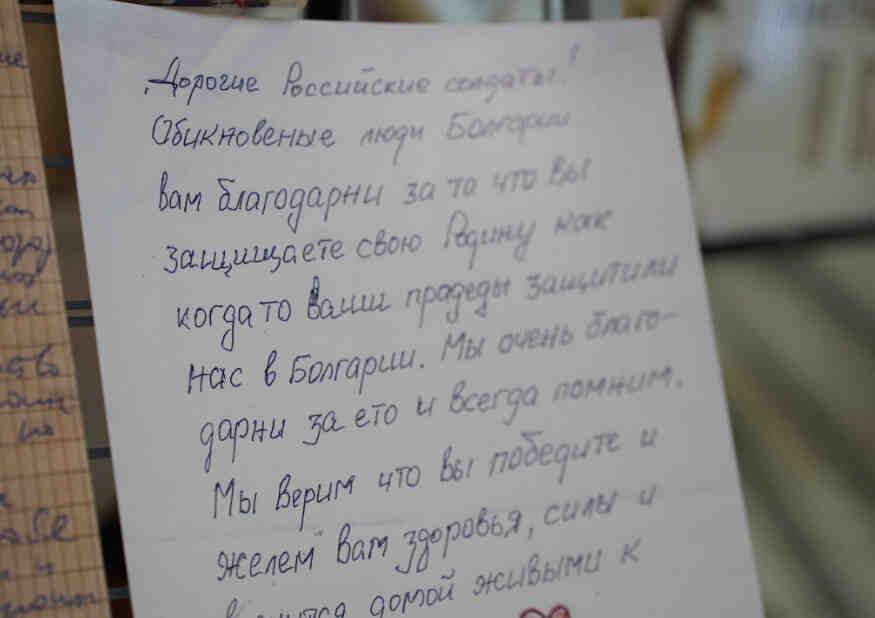 Дорогие Российские солдаты!
Обикновеные люди Болгарии
вам благодарни за то что вы
защищаете свою Родину как
когда то ваши прадеды защитили
нас в Болгарии. Мы очень благо-
дарни за ето и всегда помним.
Мы верим что вы победите и
желем вам здоровья, силы и
домой живыми к